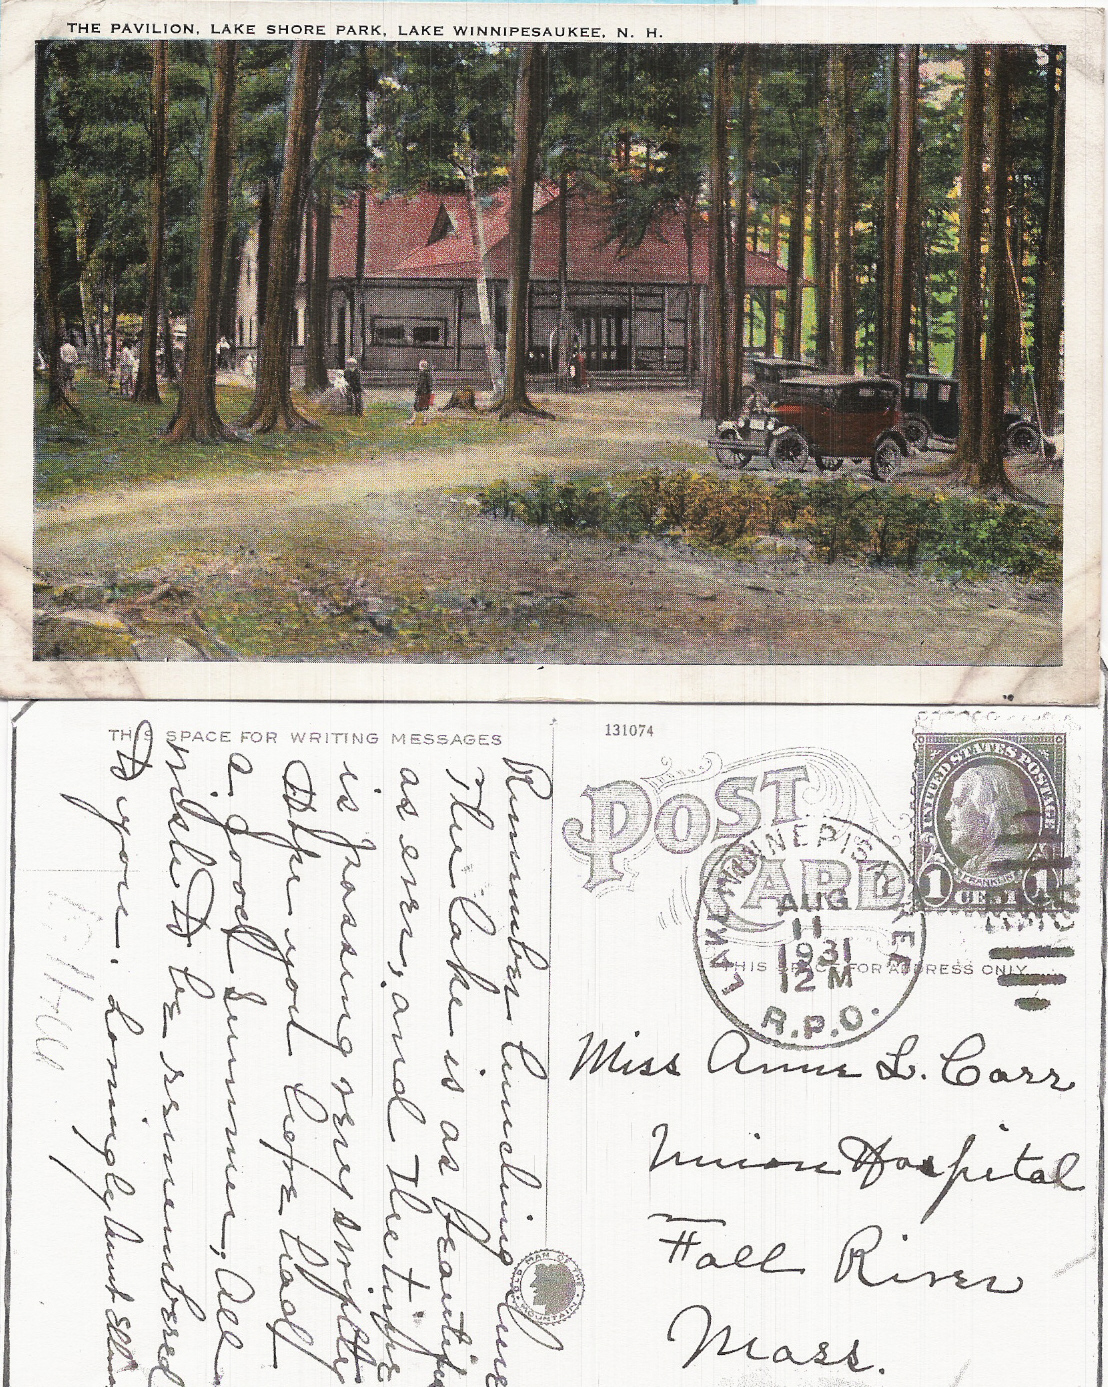 THE PAVILION, LAKE SHORE PARK, LAKE WINNIPESAUKEE, N. H.
THIS SPACE FOR WRITING MESSAGES
131074
POST CARD
UNITED STATES POSTAGE
FRANKLIN
1 CENT 1
AUG
11
1931
12 M
R.P.O.
THIS SPACE FOR ADDRESS ONLY
Remember lunching here
The lake is as beautiful
as ever, and the time
is passing very swiftly
Hope you have had
a good summer, All
wish to be remembered
to you. Lovingly Aunt
OLD MAN OF THE MOUNTAIN
Miss Anne L. Carr
Union Hospital
Fall River
Mass.